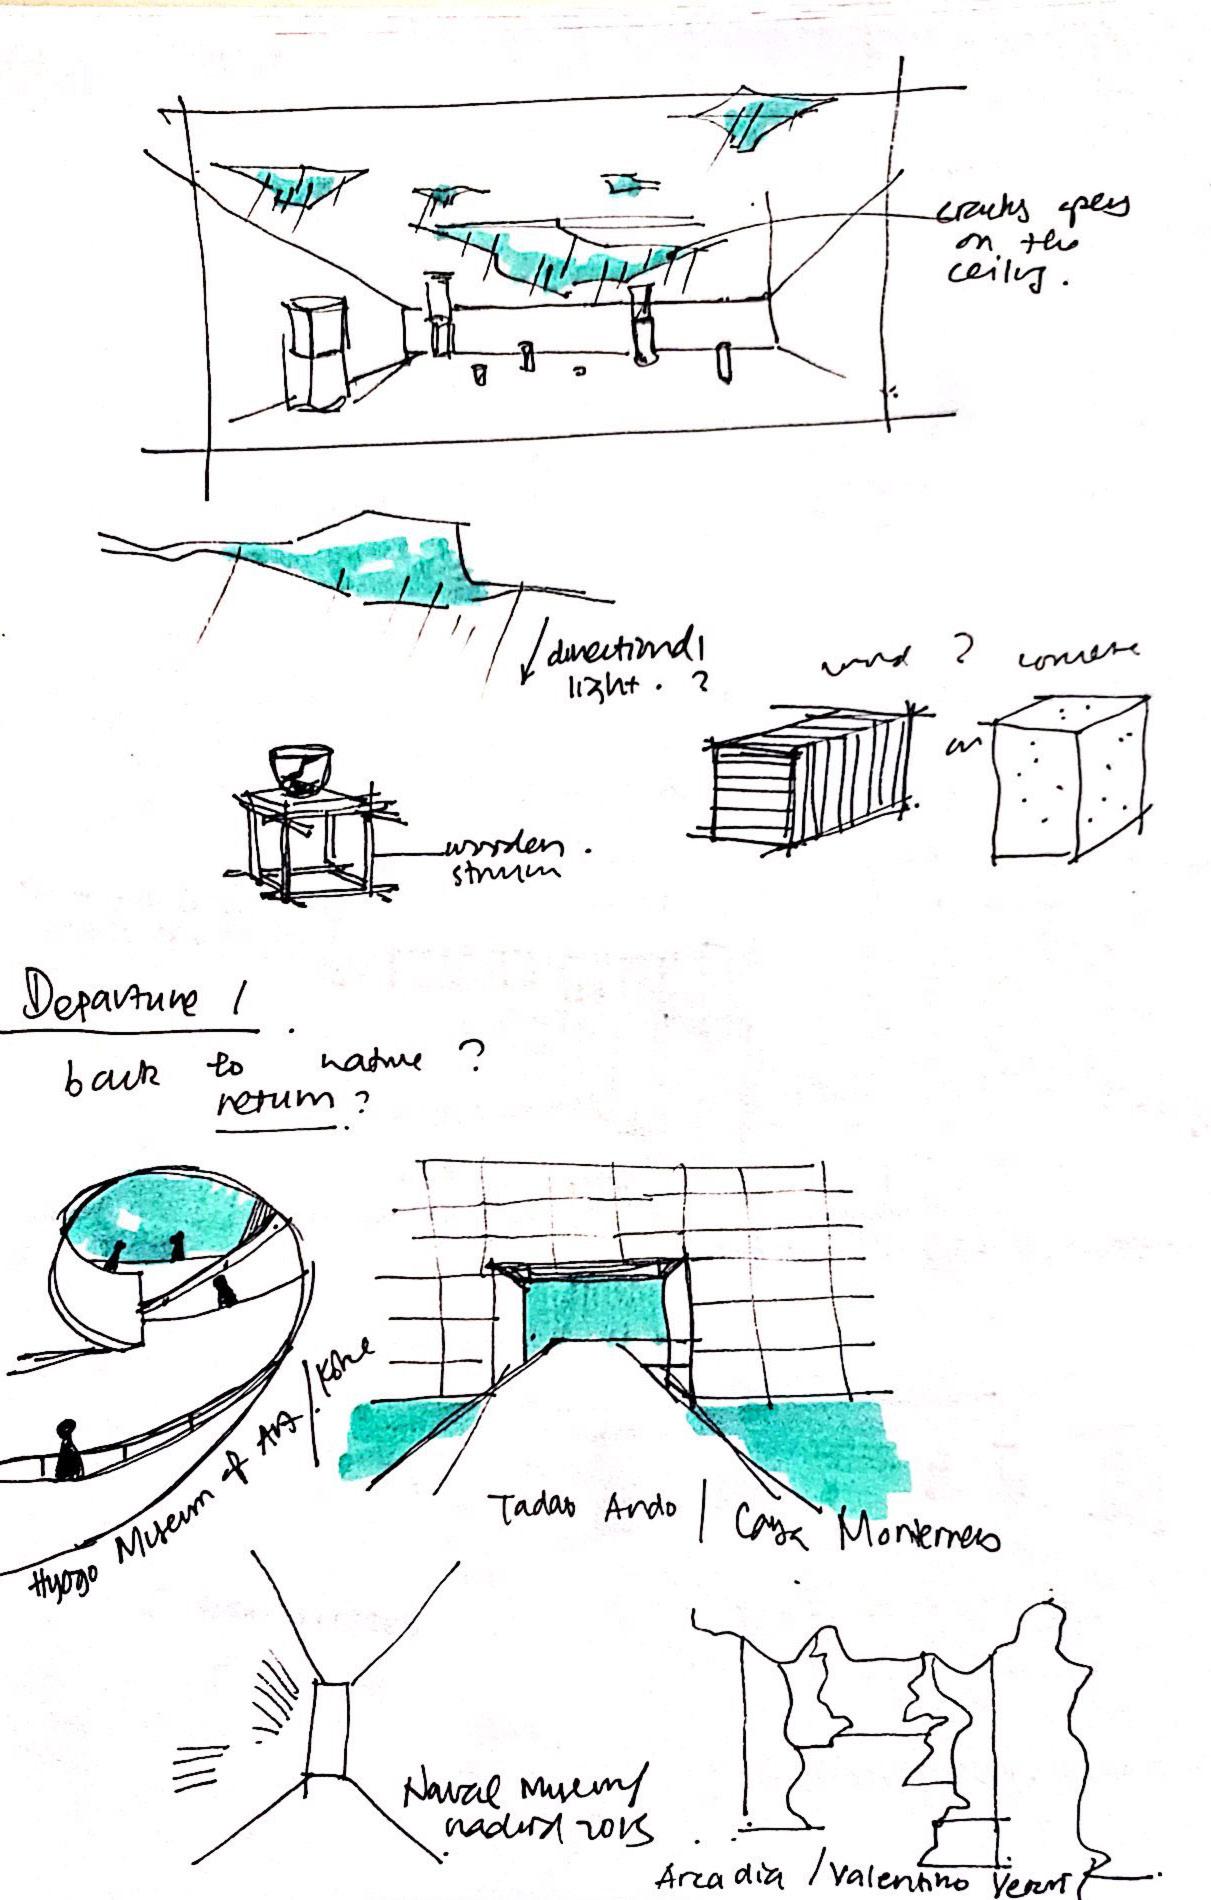 cracks open
on the
ceiling.
directional
light. ?
wood ? concrete
or
wooden.
Departure /
back to nature ?
return ?
Hyogo Museum of Art / Kobe
Tadao Ando / Casa Monterrey
Naval Museum /
madrid 2015
Arcadia / Valentino